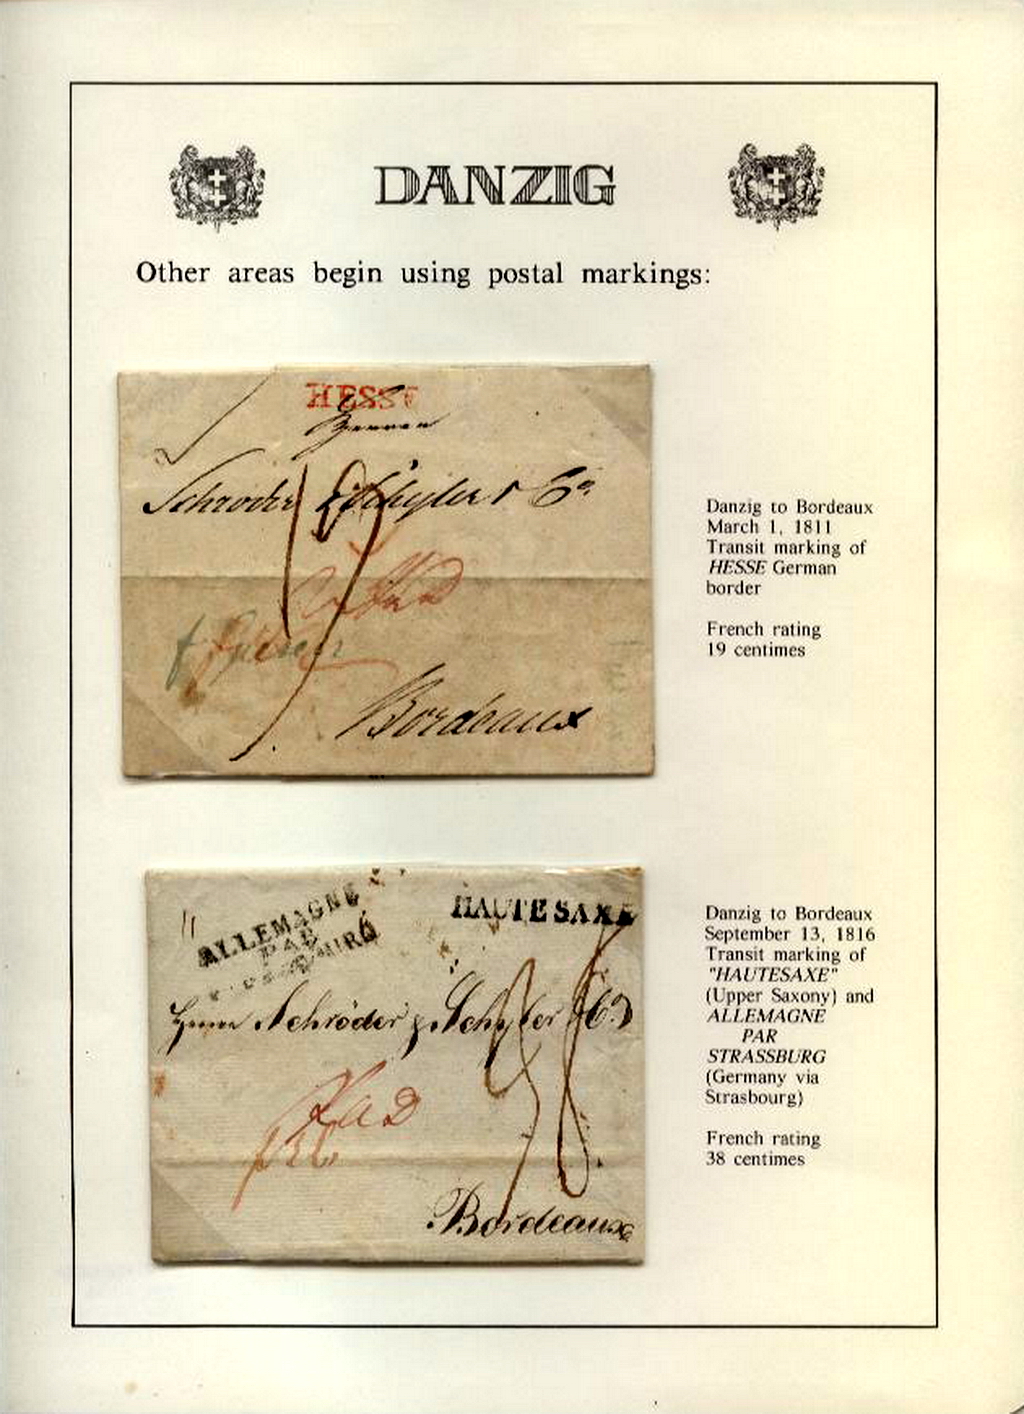 DANZIG
Other areas begin using postal markings:
HESSE
Herren
Schröder & Schÿler & Co.
Bordeaux
Danzig to Bordeaux
March 1, 1811
Transit marking of
HESSE German
border
French rating
19 centimes
ALLEMAGNE
PAR
HAUTE SAXE
Herren Schröder & Schyler & Co.
Bordeaux
Danzig to Bordeaux
September 13, 1816
Transit marking of
"HAUTESAXE"
(Upper Saxony) and
ALLEMAGNE
PAR
STRASSBURG
(Germany via
Strasbourg)
French rating
38 centimes